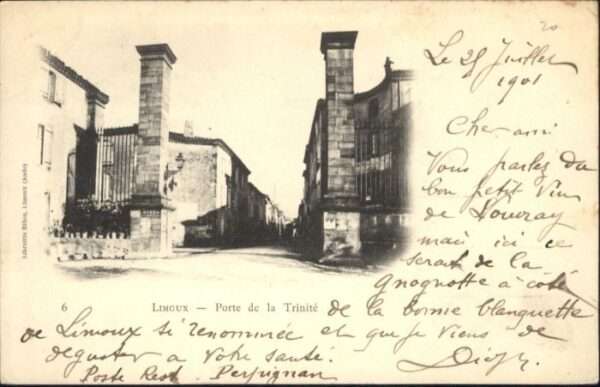 20
Le 25 Juillet
1901
Cher ami
Vous parlez du
bon petit vin
de Vouvray
mais ici ce
serait de la
gnognotte à côté
6 LIMOUX — Porte de la Trinité
de la bonne blanquette
de Limoux si renommée et que je viens de
deguster a votre santé.
Poste Rest. Perpignan
Librairie Ribou, Limoux (Aude)